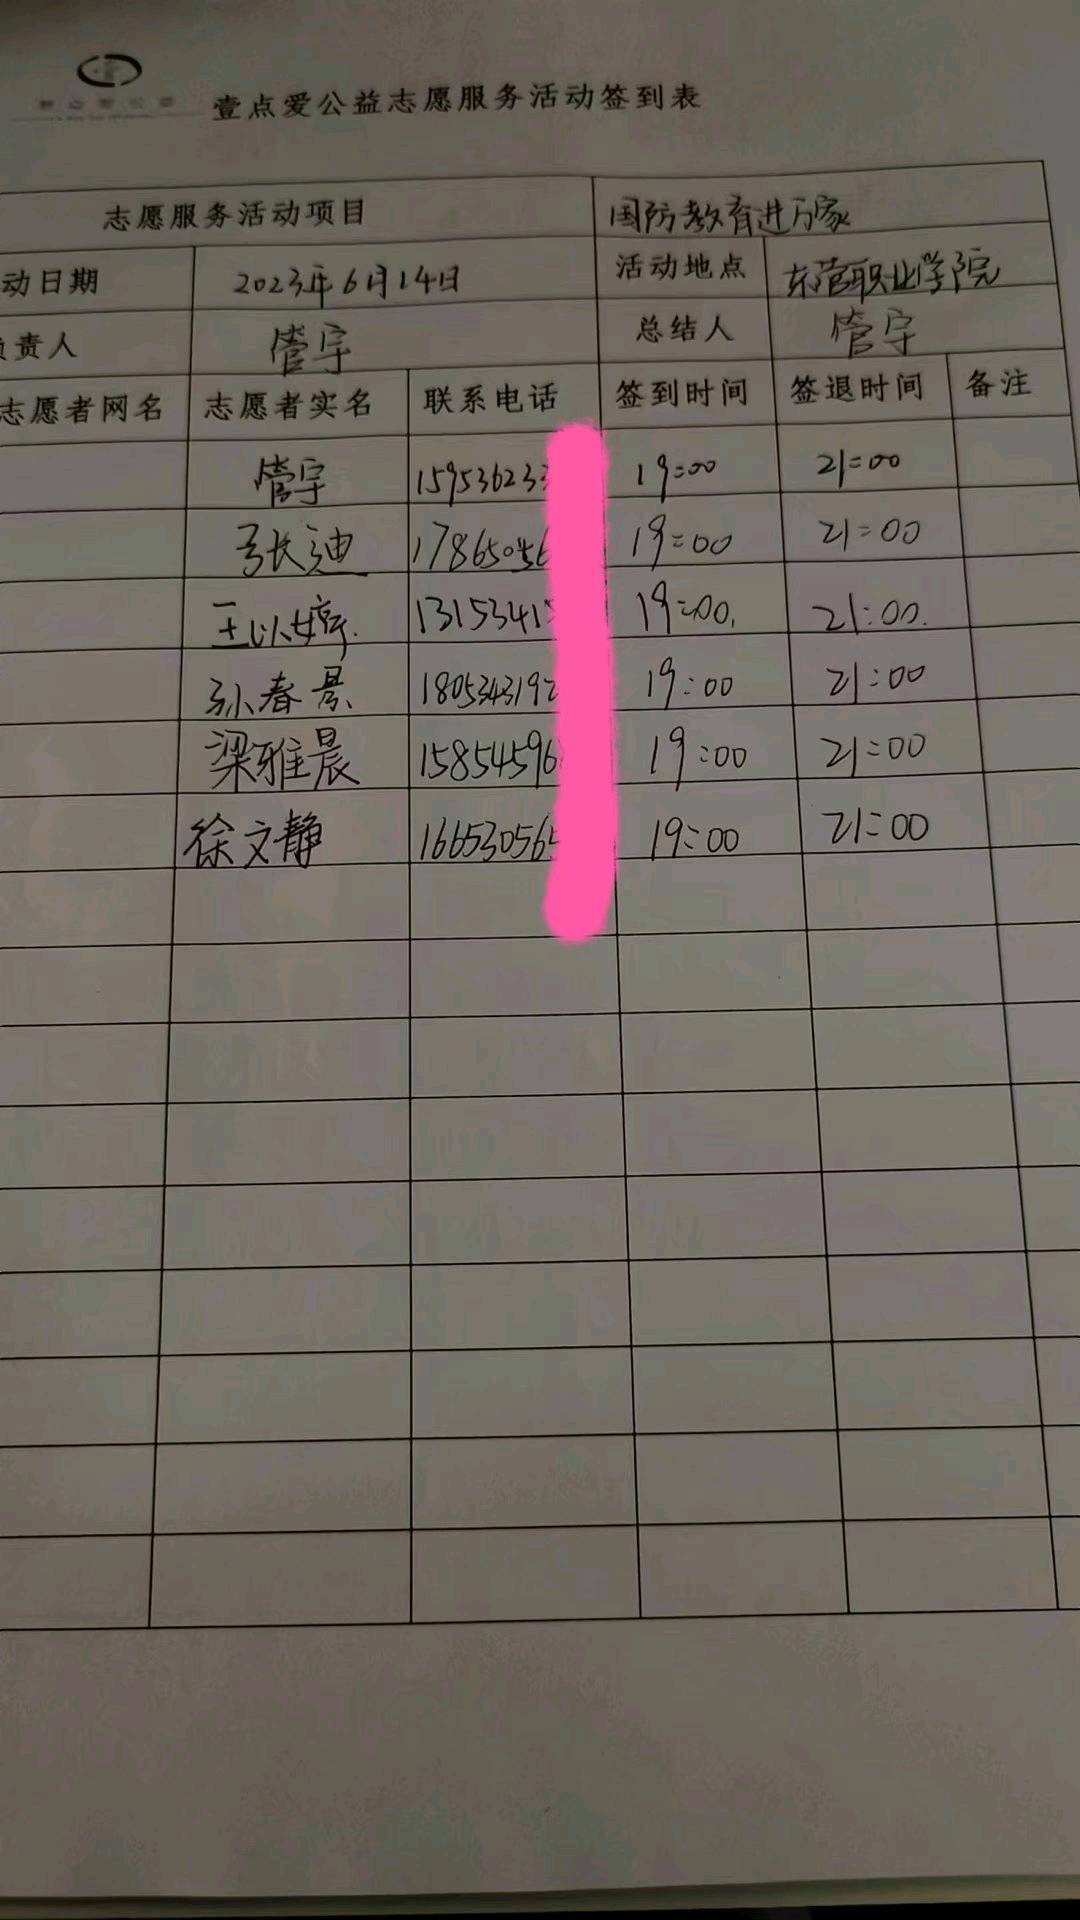 壹点爱公益志愿服务活动签到表
志愿服务活动项目 国防教育进万家
动日期 2023年6月14日 活动地点 东营职业学院
责人 管宇 总结人 管宇
志愿者网名 志愿者实名 联系电话 签到时间 签退时间 备注
管宇 159536233 19:00 21:00
张迪 17865056 19:00 21:00
王以婷 13153415 19:00. 21:00.
孙春景 180534319 19:00 21:00
梁雅晨 15854596 19:00 21:00
徐文静 166530565 19:00 21:00